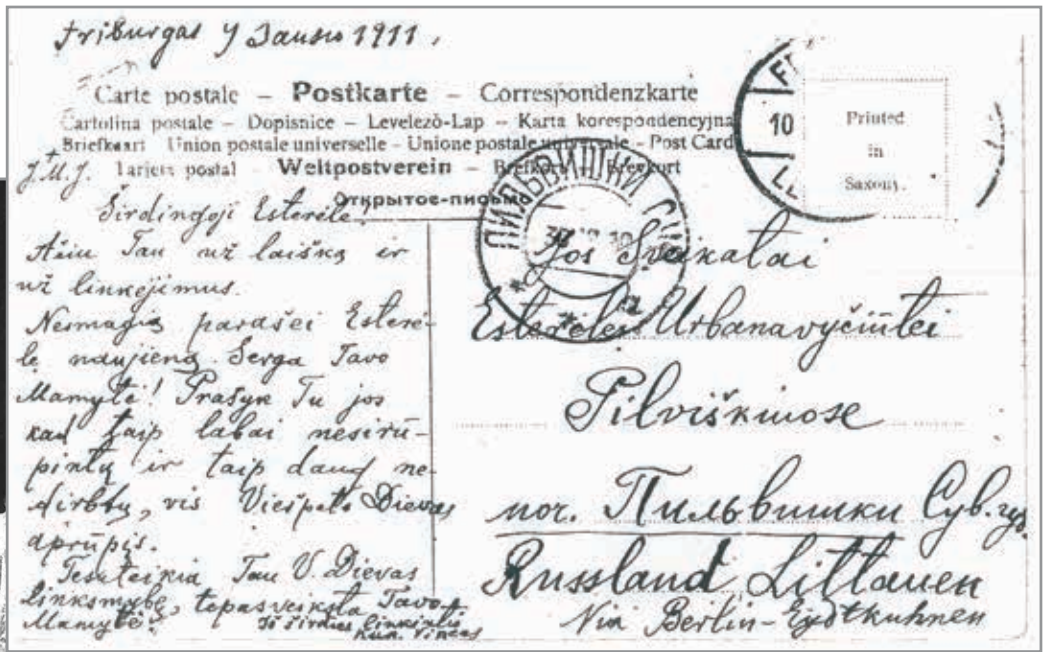 Friburgas 9 Sausio 1911.
Carte postale – Postkarte – Correspondenzkarte
Cartolina postale – Dopisnice – Levelezö-Lap – Karta korespondencyjna
Briefkaart Union postale universelle – Unione postale universale – Post Card
Tarjeta postal – Weltpostverein – Brefkort – Brevkort
Открытое-письмо
10
Printed
in
Saxony.
ПИЛЬВИШКИ
J.M.J.
Širdingoji Esterėle!
Ačiu Tau už laišką ir
už linkėjimus.
Nesmagią parašei Esterė-
le naujieną. Serga Tavo
Mamytė! Prašyk Tu jos
kad taip labai nesirū-
pintų ir taip daug ne-
dirbtų, vis Viešpats Dievas
aprūpįs.
Tesuteikia Tau V. Dievas
linksmybę, tepasveiksta Tavo
Mamytė!
Iš širdies linkintis
kun. Vincas
Jos Sveikatai
Esterėlei Urbanavyčiūtei
Pilviškiuose
поч. Пильвишки Сув. губ.
Russland Littauen
Via Berlin-Eydtkuhnen